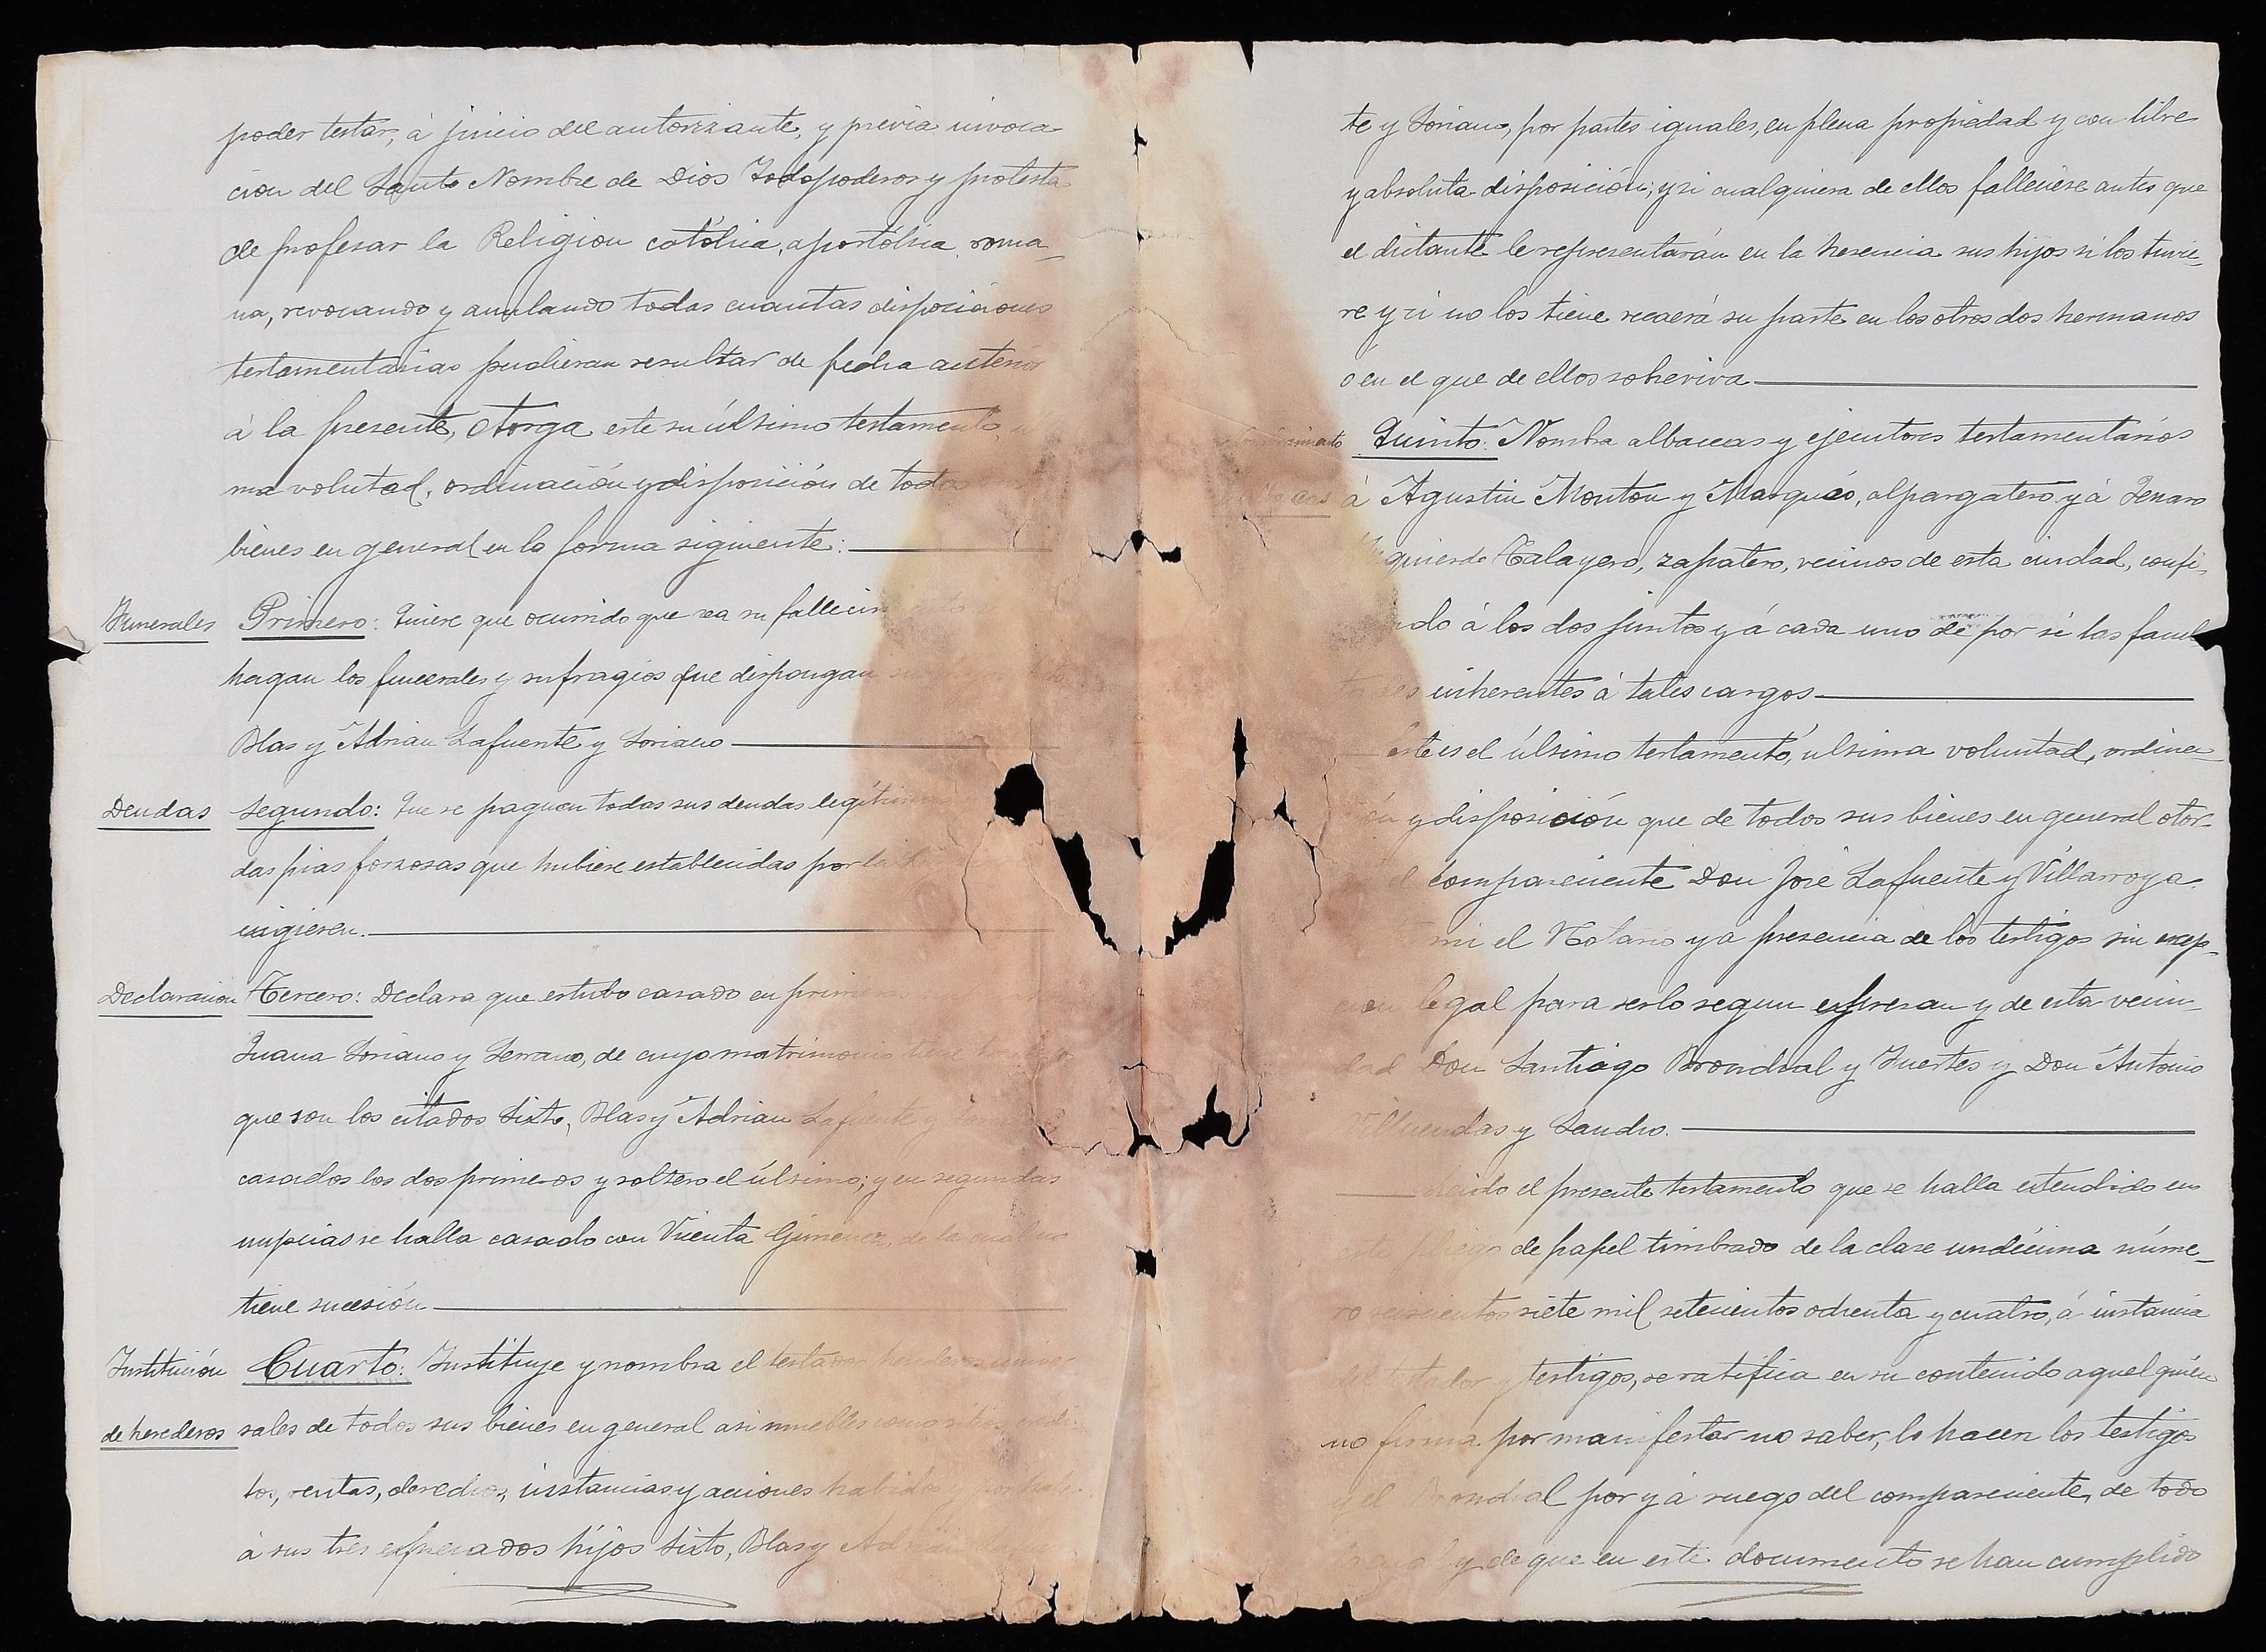 poder testar, á juicio del autorizante, y prévia invoca
cion del Santo Nombre de Dios Todopoderoso y protesta
de profesar la Religion católica, apostólica, roma_
na, revocando y anulando todas cuantas disposiciones
testamentarias pudieran resultar de fecha anterior
á la presente, Otorga este su último testamento,
ma voluntad, ordinación y disposición de todos
bienes en general en la forma siguiente:
Funerales Primero: Quiere que ocurrido que sea su fallecimiento
hagan los funerales y sufragios que dispongan
Blas y Adrian Lafuente y Soriano
Deudas Segundo: Que se paguen todas sus deudas legítimas
das pias forzosas que hubiere establecidas por la
exigieren.
Declaracion Tercero: Declara que estubo casado en primeras
Juana Soriano y Serrano, de cuyo matrimonio tiene tres
que son los citados Sixto, Blas y Adrian Lafuente y
casados los dos primeros y soltero el último; y en segundas
nupcias se halla casado con Vicenta Gimenez, de la cual no
tiene sucesión
Institución Cuarto: Instituye y nombra el testador herederos univer
de herederos sales de todos sus bienes en general asi muebles como sitios, crédi-
tos, rentas, derechos, instancias y acciones habidos y
á sus tres expresados hijos Sixto, Blas y Adrian
te y Soriano, por partes iguales, en plena propiedad y con libre
y absoluta disposición; y si cualquiera de ellos falleciese antes que
el dictante le representarán en la herencia sus hijos si los tuvie-
re y si no los tiene recaerá su parte en los otros dos hermanos
o en el que de ellos sobreviva
Quinto: Nombra albaceas y ejecutores testamentários
á Agustin Monton y Marqués, alpargatero y á Genaro
Talayero, zapatero, vecinos de esta ciudad, confi-
ndo á los dos juntos y á cada uno de por si las facul
tades inherentes á tales cargos
Este es el último testamento, ultima voluntad, ordina_
ión y disposición que de todos sus bienes en general otor-
el compareciente Don José Lafuente y Villarroya
mi el Notario y a presencia de los testigos sin excep-
cion legal para serlo segun expresan y de esta vecin-
dad Don Santiago Brondial y Fuertes y Don Antonio
Villuendas y Sancho.
el presente testamento que se halla estendido en
este pliego de papel timbrado de la clase undécima núme_
ro seiscientos siete mil setecientos ochenta y cuatro, á instancia
del testador y testigos, se ratifica en su contenido aquel quien
no firma por manifestar no saber, lo hacen los testigos
y el Brondial por y á ruego del compareciente, de todo
y de que en este documento se han cumplido